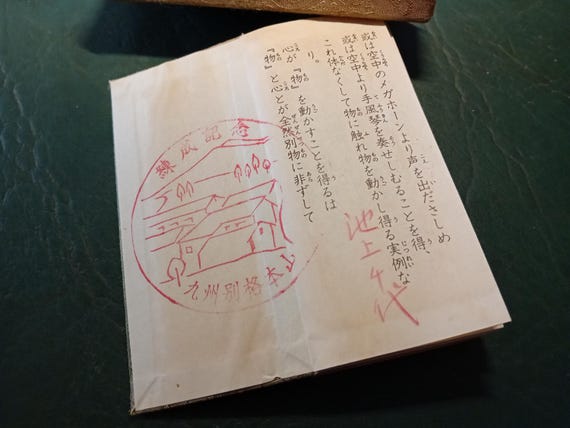 或は空中のメガホーンより声を出ださしめ
或は空中より手風琴を奏せしむることを得、
これ体なくして物に触れ物を動かし得る実例な
り。
心が『物』を動かすことを得るは
『物』と心とが全然別物に非ずして
池上千代
錬成記念
九州別格本山